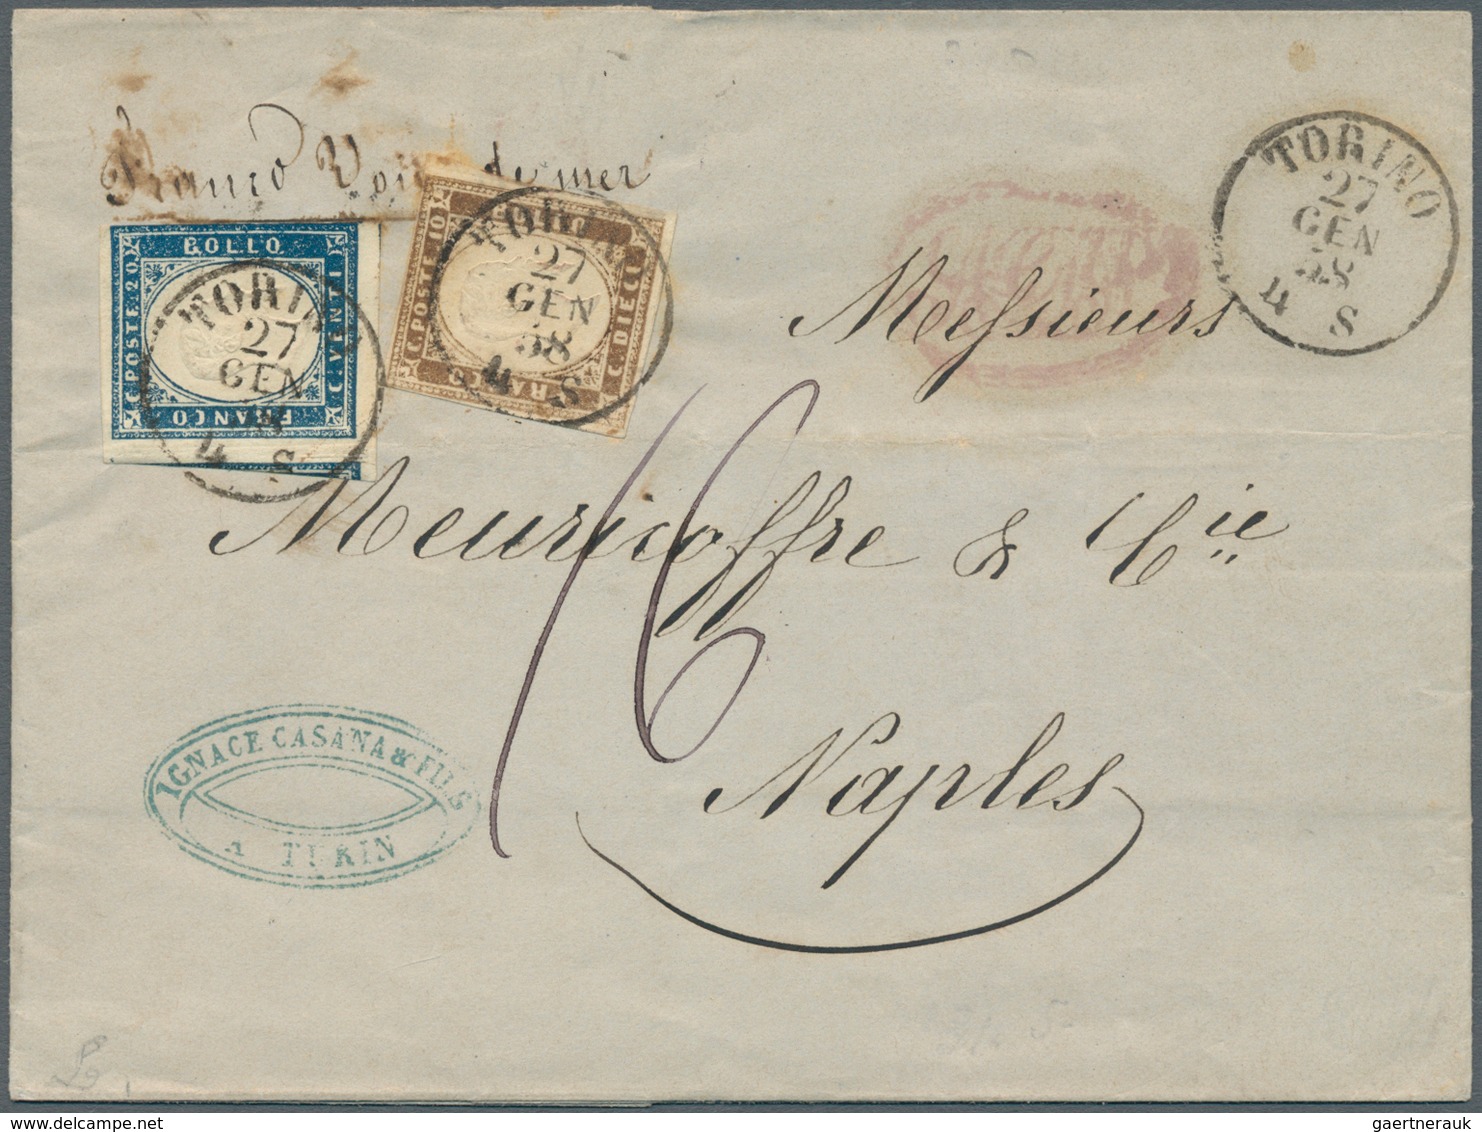 Franco Voie de mer
BOLLO
C. POSTE 20
C. VENTI
FRANCO
C. POSTE 10
C. DIECI
TORINO
27
GEN
58
4 S
TORINO
27
GEN
58
4 S
TORINO
27
GEN
58
4 S
Messieurs
Meuricoffre & Cie
16
Naples
IGNACE CASANA & FILS
A TURIN
gaertnerauk